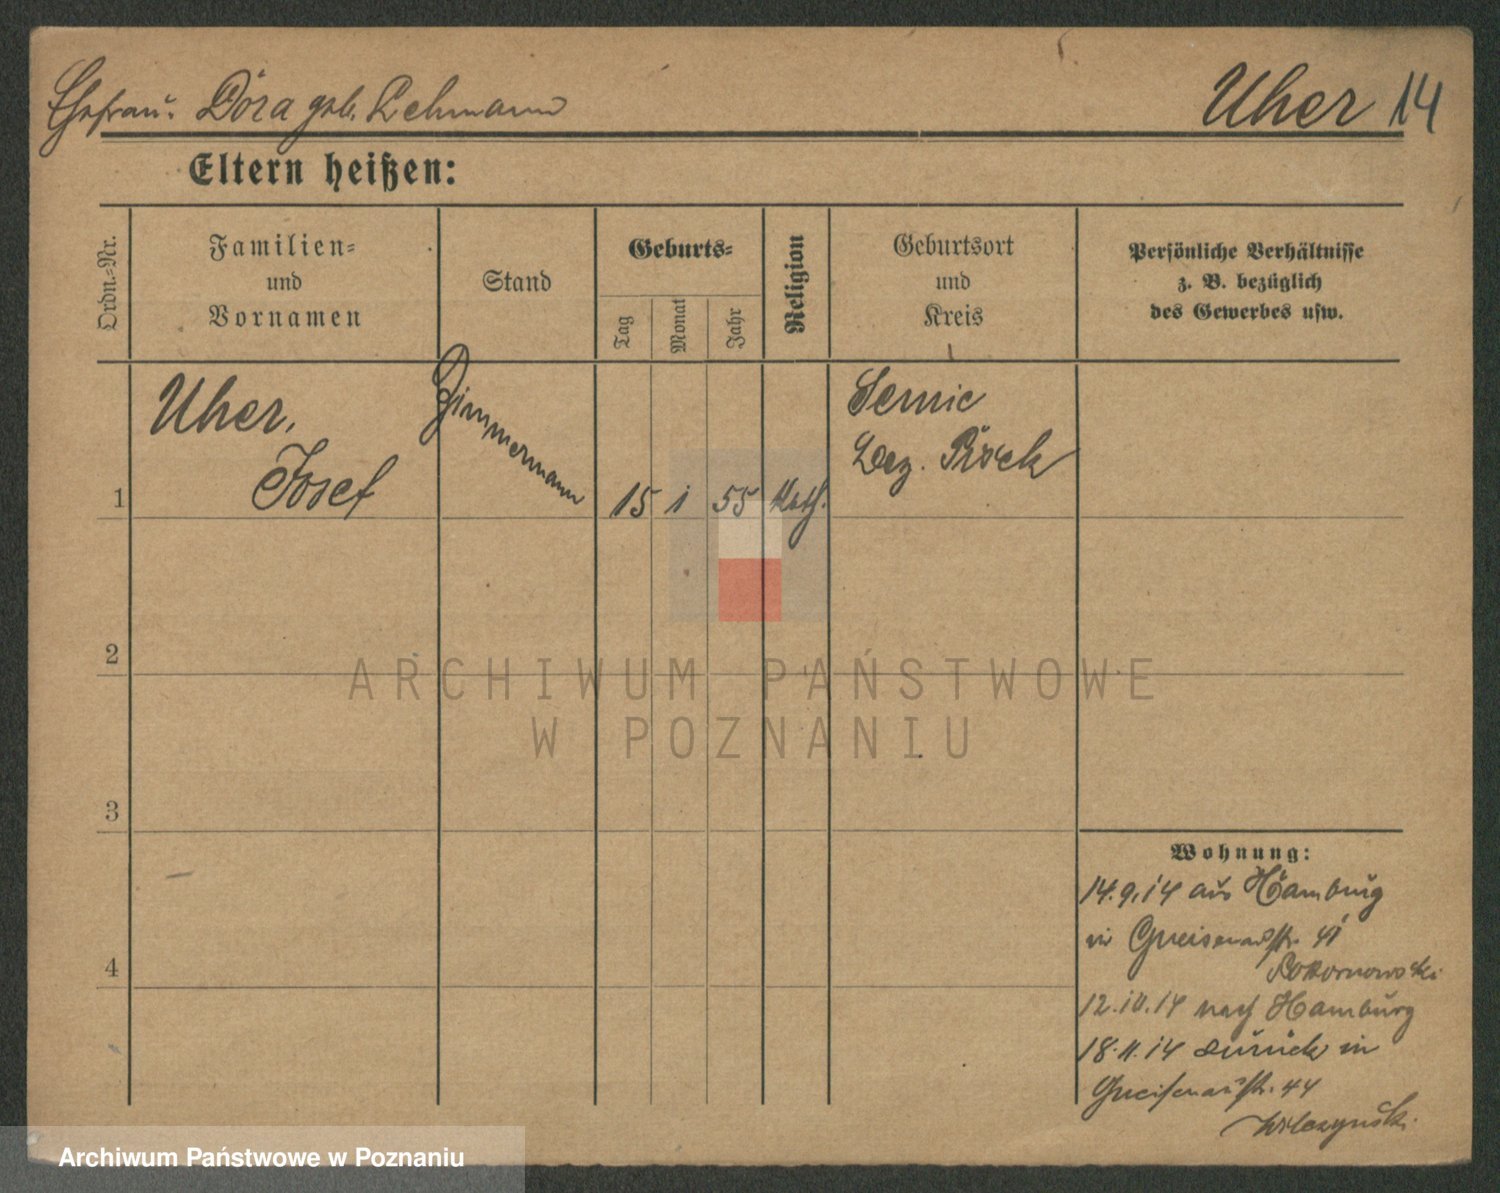 Ehefrau: Dora geb. Lehmann
Uher 14
Eltern heißen:
Ordn.=Nr.
Familien=
und
Vornamen
Stand
Geburts=
Tag
Monat
Jahr
Religion
Geburtsort
und
Kreis
Persönliche Verhältnisse
z. B. bezüglich
des Gewerbes usw.
1
Uher,
Josef
Zimmermann
15 1 55 Kath.
Semic
Bez. Pisek
2
3
4
Wohnung:
14.9.14 aus Hamburg
in Gneisenaustr. 41
12.10.14 nach Hamburg
18.11.14 zurück in
Gneisenaustr. 44
Wilczynski
ARCHIWUM PAŃSTWOWE
W POZNANIU
Archiwum Państwowe w Poznaniu